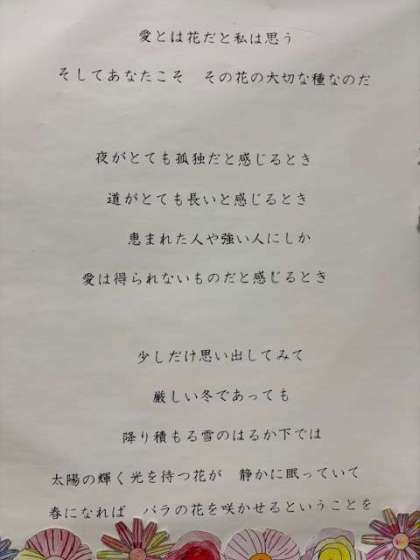 愛とは花だと私は思う
そしてあなたこそ　その花の大切な種なのだ
夜がとても孤独だと感じるとき
道がとても長いと感じるとき
恵まれた人や強い人にしか
愛は得られないものだと感じるとき
少しだけ思い出してみて
厳しい冬であっても
降り積もる雪のはるか下では
太陽の輝く光を待つ花が　静かに眠っていて
春になれば　バラの花を咲かせるということを